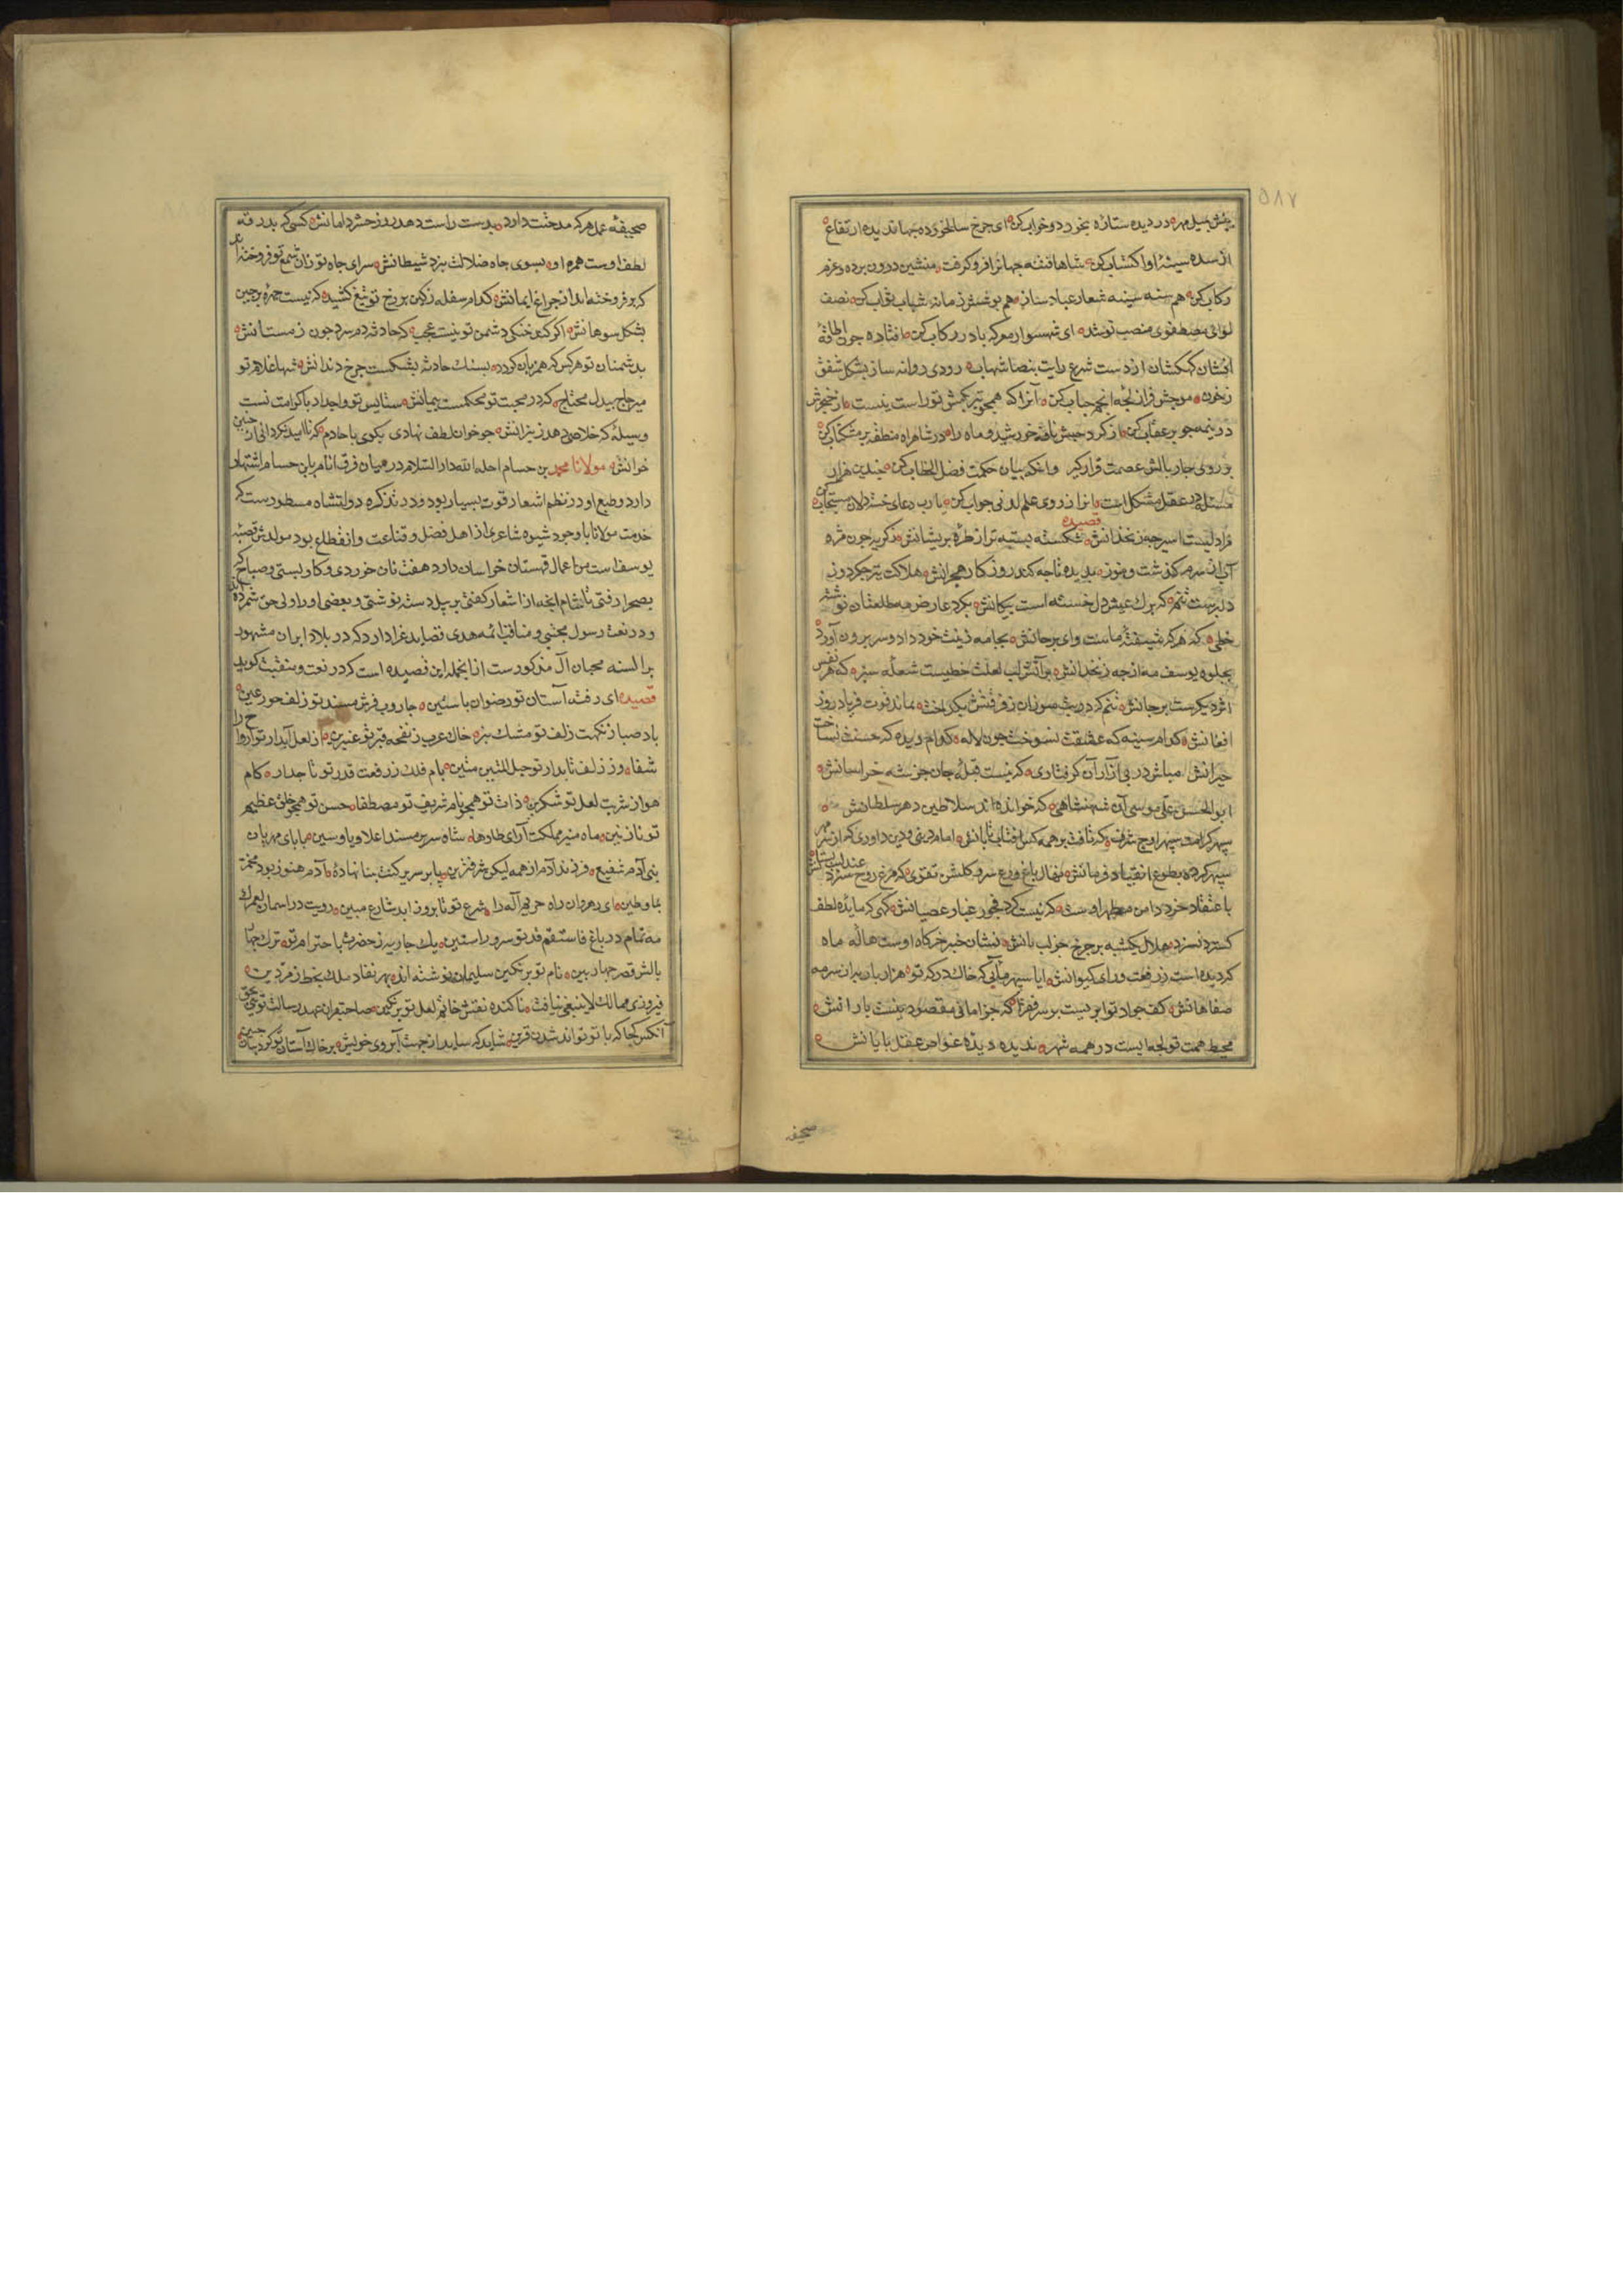 ۵۸۷
از سده سینه او اکتساب کن شاها فتنه جهانرا فرو کرفت منشین درون برده و عزم
رکاب کن هم سینه شعار عباد ساز هم بوشش زمانه شهاب
لوائی مصطفوی منصب تو شد ای شهسوار معرکه با در رکاب کن افتاده جون
از دست شرع رایت شهاب رودی روانه ساز بشکل شفق
زخون موجش فراز لجه انجم حباب کن آنرا که همجو تیر بکیش تو راست نیست از خنجرش
خورشید و ماه را در شاهراه منطقه بر مشکتاب کن
بر روی جار بالش عصمت قرار کیر وانکه بیان حکمت فصل الخطاب کن جندین هزار
مسئله در عقل مشکل است انرا از روی علم لدنی جواب کن یا رب دعای خسته دلان مستجاب کن
قصیده
مرا دلیست اسیر جه زنخدانش شکسته بسته تر از طره بریشانش ز کریه جون مژه
آب از سرم کذشت و هنوز بدیده تا جه کند روز کار هجرانش هلاکت تیر جکر دوز
که بر ک عیش دل خسته است بیکانش بکرد عارض مه طلعتان نوشته
خطی که هر که شیفته ماست وای بر جانش بجامه زینت خود داد و سر برون آورد
بجلوه یوسف مه از جه زنخدانش بر آتش لب لعلت خطیست شعله سبز که هر نفس
اثر دیکرست بر جانش تنم که در تب سوزان ز فرقتش بکداخت نماند قوت فریاد روز
افغانش کدام سینه که عشقت نسوخت جون لاله کدام دیده که حسنت نساخت
حیرانش مباش در بی آزار آن کرفتاری که نیست قبله جان جز شه خراسانش
ابو الحسن علی موسی آن شهنشاهی که خوانده اند سلاطین دهر سلطانش
سبهر کرامت سبهر اوج شرف که تافت بر همه کس آفتاب تابانش امام دنیی و دین داوری که از سر مهر
سبهر کرده بطوع انقیاد فرمانش نهال باغ ورع سرو کلشن تقوی که مرغ روح سزد عندلیب بستانش
باعتقاد خرد دامن مطهر اوست که نیست کرد فجور غبار عصیانش کهی که مایده لطف
کسترد نسزد هلال یکشبه بر جرخ جز لب نانش نشان خبر خرکاه اوست هاله ماه
که دیده است ز رفعت ورای کیوانش ایا سبهر مآبی که خاک درکه تو هزار بار به از سرمه
صفاهانش کف جواد تو ابریست بر سر فقرا که جز امانی مقصود نیست بارانش
محیط همت تو لجه ایست در همه شهر ندیده دیده غواص عقل بایانش
صحیفه
صحیفه عمل هر که مدحتت دارد بدست راست دهد روز حشر دامانش کسی که بدرقه
لطف اوست همره او بسوی جاه ضلالت نبرد شیطانش سرای جاه تو زان شمع بر فروخته اند
که بر فروخته اند از جراغ ایمانش کدام سفله ز کین بر رخ تو تیغ کشید که نیست جهره بر جین
بشکل سوهانش اکر بخشکی دشمن تو نیست عجب که حادثه دم سرد جون زمستانش
بدشمنان تو هر کس که همزبان کردد بسنک حادثه بشکست جرخ دندانش شها غلام تو
میر حاج بیدل محتاج که در محبت تو محکمست بیمانش ستایش تو و اجداد با کرامت تست
وسیله که خلاصی دهد ز نیرانش جو خوان لطف نهادی بکوی با خادم که نا امید نکردانی از جنین
خوانش مولانا محمد بن حسام احله الله دار السلام در میان فرق انام باین حسام اشتهار
دارد و طبع او در نظم اشعار قوت بسیار بود و در تذکره دولتشاه مسطورست که
خدمت مولانا با وجود شیوه شاعری از اهل فضل و قناعت و انقطاع بود مولدش قصبه
یوسف است من اعمال قهستان خراسان دارد هفت نان خوردی و کاو بستی و صباح که
بصحرا رفتی تا شام انجه از اشعار کفتی بر بیل دسته نوشتی و بعضی او را ولی حق شمرده اند
و در نعت رسول مجتبی و مناقب ائمه هدی قصاید غرا دارد که در بلاد ایران مشهور
بر السنه محبان آل مذکورست از انجمله این قصیده است که در نعت و منقبت کوید
قصیده ای رفته آستان تو رضوان باستین جاروب فرش مسند تو زلف حور عین
باد صبا ز نکهت زلف تو مشک بیز خاک عرب ز نفحه قبر تو عنبرین از لعل آبدار تو ارواح را
شفا وز زلف تابدار تو حبل المتین متین بام فلک ز رفعت قدر تو تاجدار کام
هوا ز شربت لعل تو شکرین ذات تو همجو نام شریف تو مصطفا حسن تو همجو خلق عظیم
تو نازنین ماه منیر مملکت آرای طاوها شاه سریر مسند اعلا و یاوسین بابای مهربان
بنی آدم شفیع فرزند آدم از همه لیکن شریفترین با بر سریر کنت نبیا نهاده آدم هنوز بود مخمر
بماو طین ای رهروان راه حریم آله را شرع تو تا بروز ابد شارع مبین رویت در اسمان لعمرک
مه تمام در باغ فاستقم قد تو سرو راستین
بالش قصر جهار بین نام تو بر نکین سلیمان نوشته اند بهر نفاد ملک بخط زمردین
فیروزی ممالک لا ینبغی نیافت ناکنده نقش خاتم لعل تو بر نکین صاحبقران عهد رسالت توئی بحق
آنکس کجا که با تو تواند شدن قرین شاید که ساید از جهت آبروی خویش بر خاک آستان تو کردنان جبین